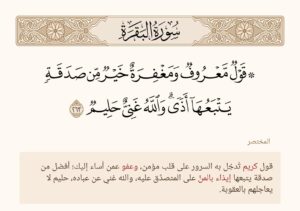 سُورَةُ البَقَرَةِ
۞ قَوْلٌ مَّعْرُوفٌ وَمَغْفِرَةٌ خَيْرٌ مِّن صَدَقَةٍ
يَتْبَعُهَآ أَذًى ۗ وَٱللَّهُ غَنِىٌّ حَلِيمٌ ٢٦٣
المختصر
قول كريم تُدخِل به السرور على قلب مؤمن، وعفو عمن أساء إليك؛ أفضل من
صدقة يتبعها إيذاء بالمنِّ على المتصدَّق عليه، والله غني عن عباده، حليم لا
يعاجلهم بالعقوبة.